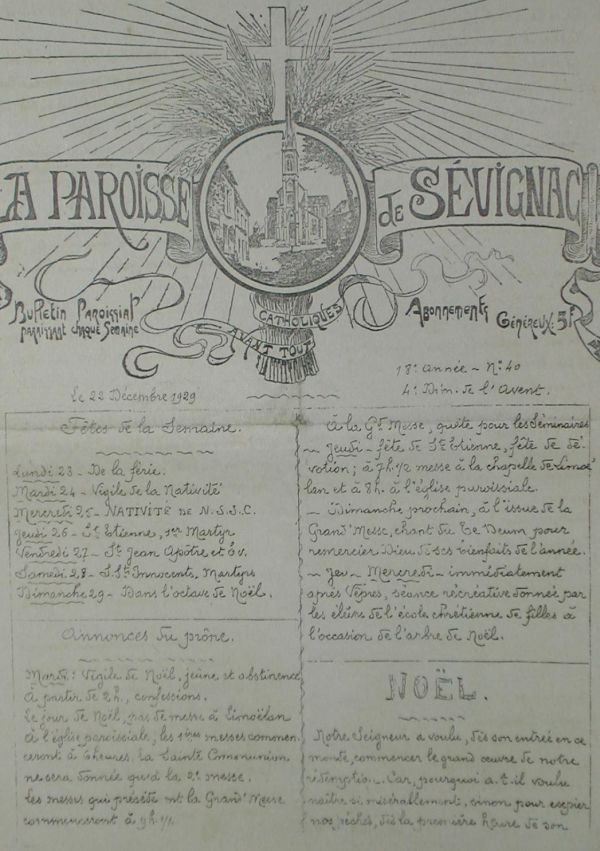 LA PAROISSE de SÉVIGNAC
Bulletin Paroissial
paraissant chaque Semaine
CATHOLIQUES
AVANT TOUT
Abonnements
Généreux: 5f
Le 22 Décembre 1929
18e année - No 40
4e Dim. de l'Avent.
Fêtes de la Semaine.
Lundi 23 - De la férie.
Mardi 24 - Vigile de la Nativité
Mercredi 25 - NATIVITÉ DE N.S.J.C.
Jeudi 26 - St Etienne, 1er Martyr
Vendredi 27 - St Jean Apôtre et Ev.
Samedi 28 - S.S. Innocents, Martyrs
Dimanche 29 - Dans l'octave de Noël.
Annonces du prône.
Mardi: Vigile de Noël, jeûne et abstinence
à partir de 2h., confessions.
Le jour de Noël, pas de messe à Limoëlan
à l'église paroissiale, les 1ères messes commen
ceront à 6 heures. La Sainte Communion
ne sera donnée qu'à la 2e messe.
Les messes qui précèdent la Grand' Messe
commenceront à 9h. 1/2
à la Gd Messe, quête pour les Séminaires
~ Jeudi - fête de St Etienne, fête de dé-
votion; à 7h.1/2 messe à la chapelle de Limoë
lan et à 8h. à l'église paroissiale.
- Dimanche prochain, à l'issue de la
Grand' Messe, chant du Te Deum pour
remercier Dieu de ses bienfaits de l'année.
~ Jeu - Mercredi - immédiatement
après Vêpres, séance récréative donnée par
les élèves de l'école chrétienne de filles à
l'occasion de l'arbre de Noël.
NOËL.
Notre Seigneur a voulu, dès son entrée en ce
monde, commencer le grand œuvre de notre
rédemption. Car, pourquoi a-t-il voulu
naître si misérablement, sinon pour expier
nos péchés, dès la première heure de son